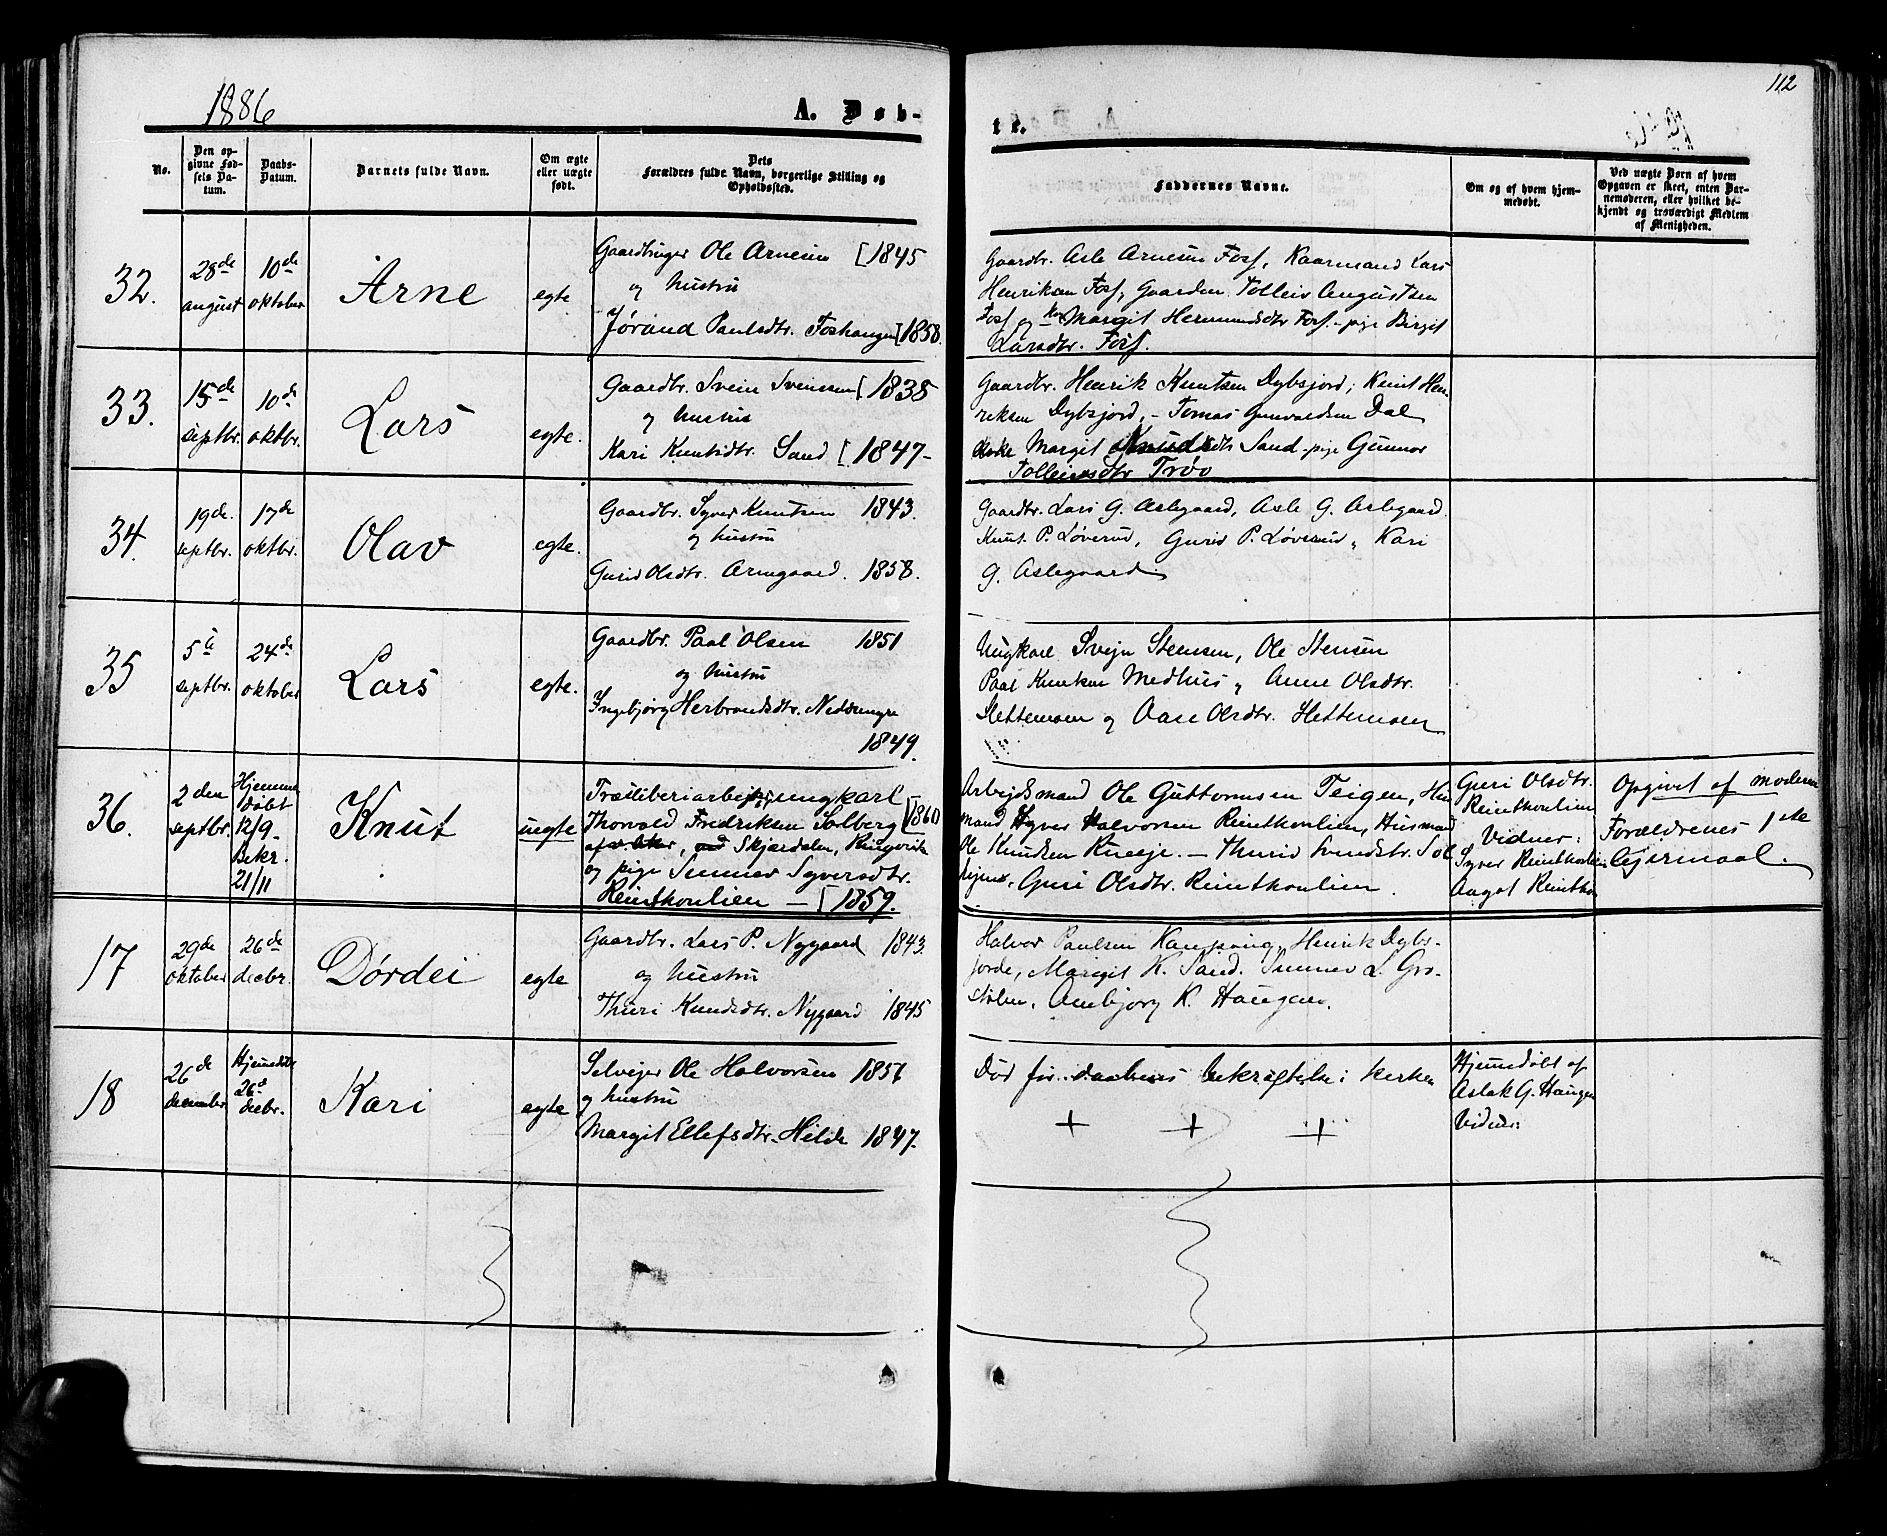 1886
A. Døb-
te.
112
No.
Den op-
givne Fød-
sels Da-
tum.
Daabs-
Datum.
Barnets fulde Navn.
Om ægte
eller uægte
født.
Dets
Forældres fulde Navn, borgerlige Stilling og
Opholdssted.
Faddernes Navne.
Om og af hvem hjem-
medøbt.
Ved uægte Børn af hvem
Opgaven er skeet, enten Bar-
nemoderen, eller hvilket be-
kjendt og troværdigt Medlem
af Menigheden.
32.
28de
august
10de
oktober
Arne
egte.
Gaardbruger Ole Arnesen [1845
og hustru
Jørand Paulsdtr. Foshaugen [1858.
Gaardbr. Asle Arnesen Fosf, Kaarmand Lars
Henriksen Fosf, Gaarden Tolleiv Augustsen
Fosf og Margit Hermundsdtr Fosf - pige Birgit
Larsdtr. Fosf.
33.
15de
septbr.
10de
oktbr.
Lars
egte.
Gaardbr. Svein Svensen [1838
og hustru
Kari Knutsdtr. Sand [1847-
Gaardbr. Henrik Knutsen Dybsjord, Knut Hen-
reksen Dybsjord, - Tomas Gunvaldsen Dal
Margit Sand - pige Gunnor
Tolleivsdtr Trøo
34.
19de.
septbr.
17de
oktbr.
Olav
egte.
Gaardbr. Syver Knutsen 1843.
og hustru
Gurid Olsdtr. Arnegaard. 1858.
Gaardbr. Lars G. Aslegaard, Asle G. Aslegaard.
Knut P. Løverud, Gurid P. Løverud, Kari
G. Aslegaard
35
5te
septbr.
24de
oktober
Lars
egte.
Gaardbr. Paal Olsen 1851
og hustru
Ingebjørg Herbrandsdtr. Neddengen
1849.
Ungkarl Svejn Steensen, Ole Stensen
Paal Knutsen Medhus, Anne Olsdtr.
Slettemoen og Aase Olsdtr. Slettemoen
36.
2den
septbr.
Hjemme
døbt
12/9-
Bekr.
21/11
Knut
uegte
Træsliberiarbejder, ungkarl
Thorvald Fredriksen Solberg [1860
Skjærdalen, Ringerike
og pige Sunnev Syversdtr.
Reinthonlien - [1859.
Arbejdsmand Ole Guttormsen Teigen, Hus
mand Syver Halvorsen Reinthonlien, Husmand
Ole Knudsen Kneeje. - Thurid Svendsdtr. Sol
hjem, Guri Olsdtr. Reinthonlien.
Guri Olsdtr.
Reinthonlien
Vidner:
Syver Reinthonlien
Aagot Reintho
Opgivet af moderen
Forældrenes 1ste
lejermaal.
17
29de
oktober
26de
decbr.
Dørdei
egte
Gaardbr. Lars P. Nygaard 1843.
og hustru
Thuri Knudsdtr. Nygaard 1845
Halvor Paulsen Kamping, Henrik Dybs-
jorde, Margit K. Sand. Sunnev L. Gro-
stølen, Annbjørg K. Haugen.
18
26de
december
Hjemmedøbt
26de
decbr.
Kari
egte
Selvejer Ole Halvorsen 1851
og hustru
Margit Ellefsdtr. Hilde 1847.
Død før daabens bekræftelse i kirken
+ + +
Hjemmedøbt af
Aslak G. Haugen
Vidner: